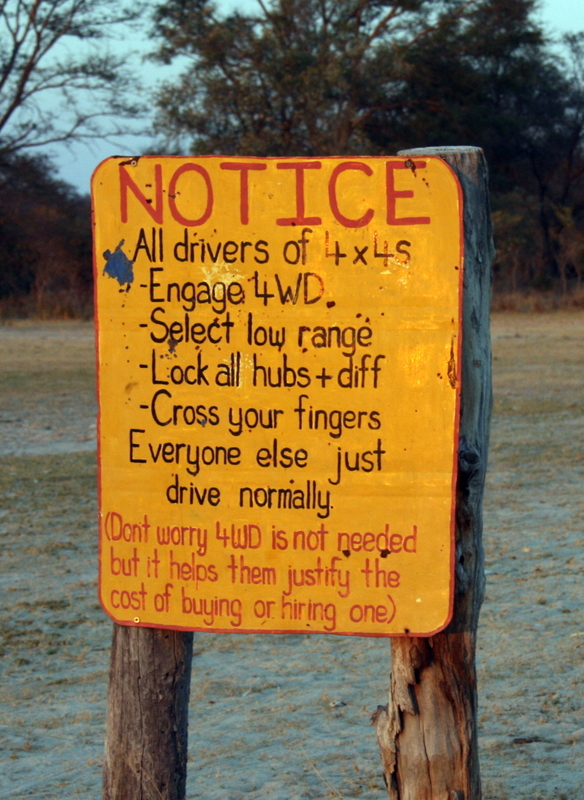 NOTICE
All drivers of 4x4s
-Engage 4WD.
-Select low range
-Lock all hubs + diff
-Cross your fingers
Everyone else just
drive normally.
(Dont worry 4WD is not needed
but it helps them justify the
cost of buying or hiring one)